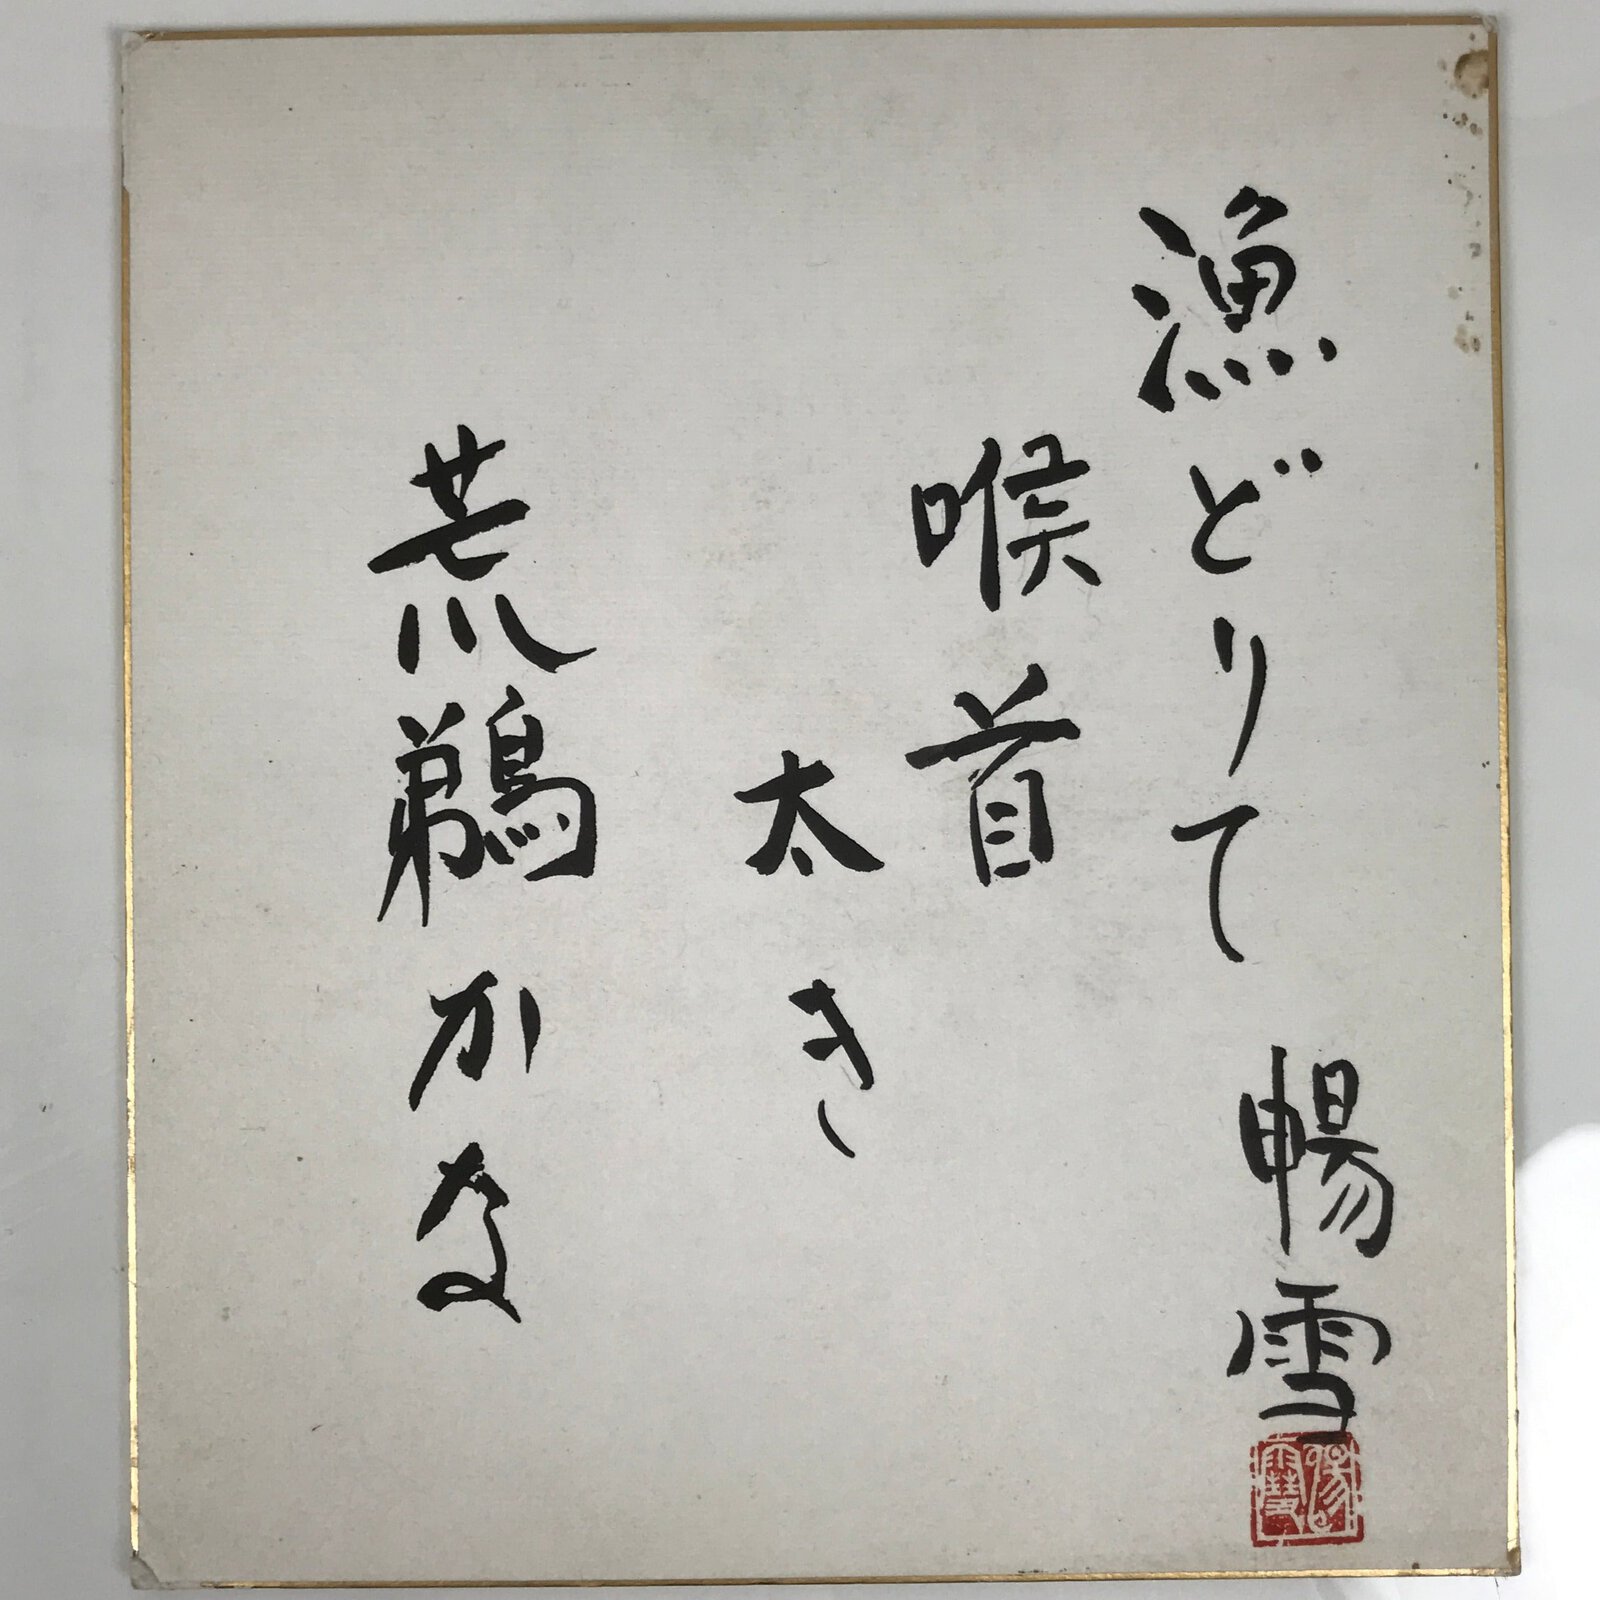 漁どりて
喉首
太き
荒鵜かな
暢雪
暢雪